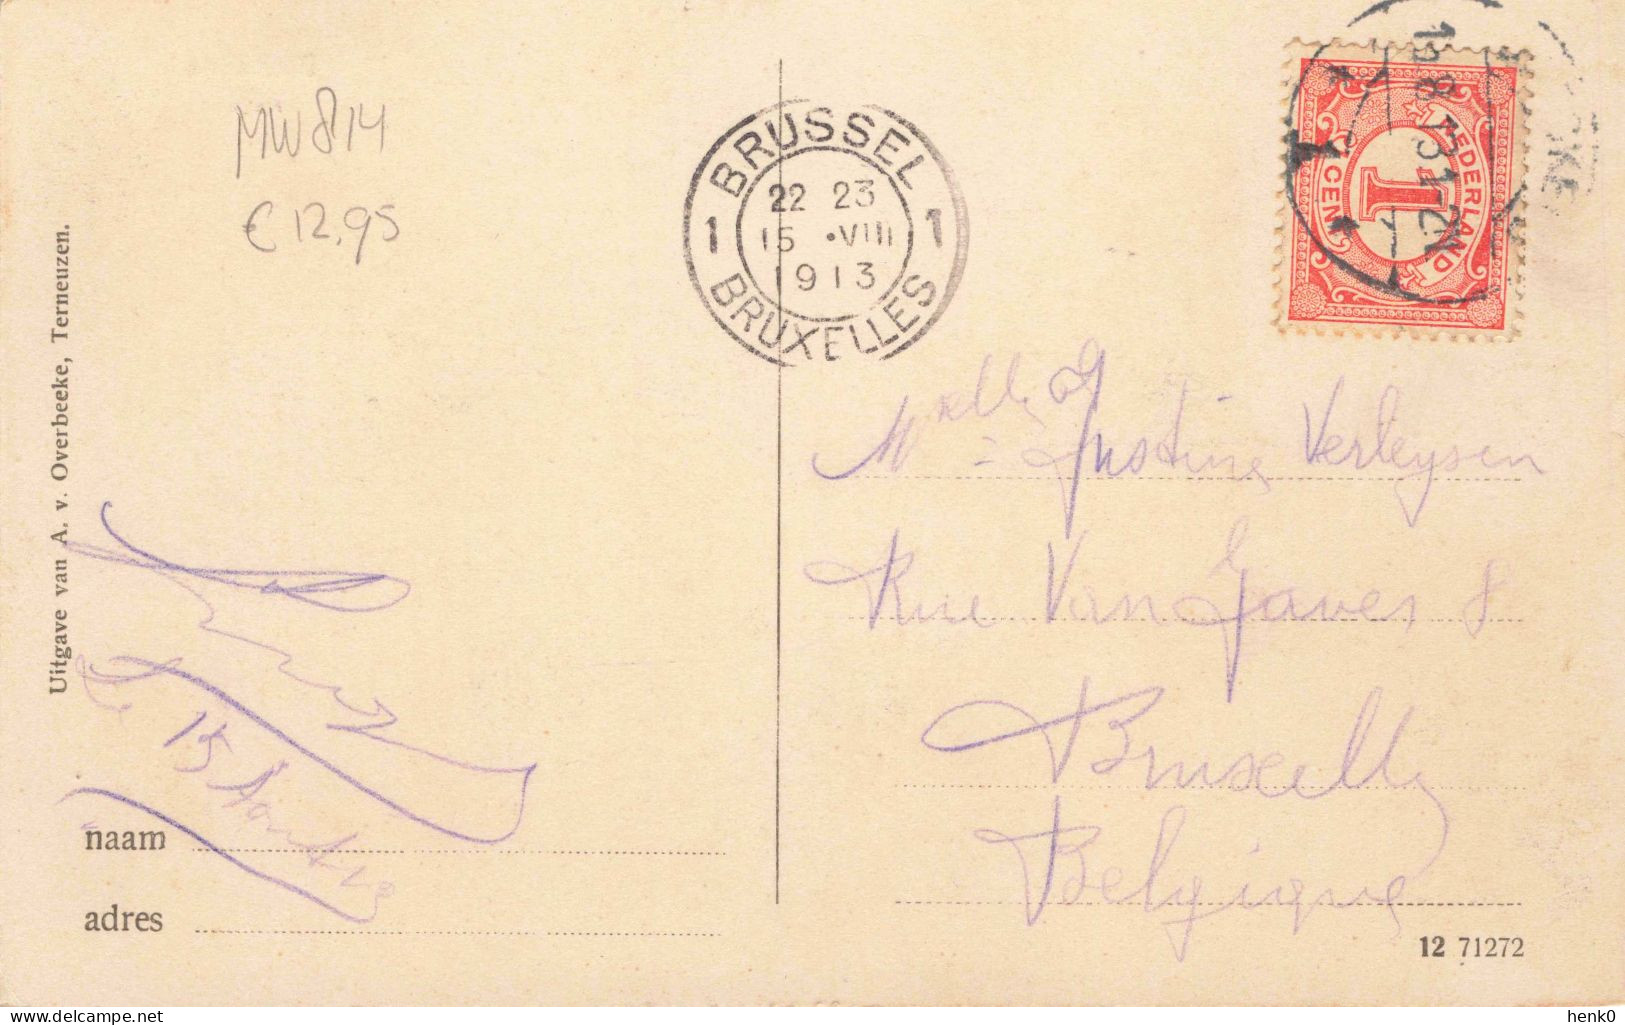 MW814
€ 12,95
Uitgave van A. v. Overbeeke, Terneuzen.
BRUSSEL
1 22 23 1
15 •VIII
1913
BRUXELLES
NEDERLAND
1
CENT
8.13.1-2N
Melle Justine Verleysen
Rue Van Gaver 8
Bruxelles
Belgique
15
naam
adres
12 71272
henk0